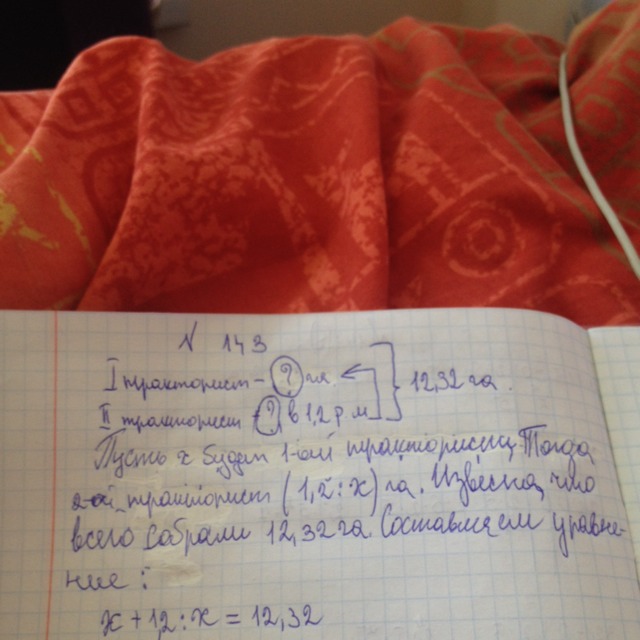 N 143
I тракторист - ? га
12,32 га.
II тракторист - ?, в 1,2 р. м
Пусть x будет 1-ый тракторист. Тогда
2-ой тракторист (1,2 : x) га. Известно, что
всего собрали 12,32 га. Составляем уравне-
ние:
x + 1,2 : x = 12,32